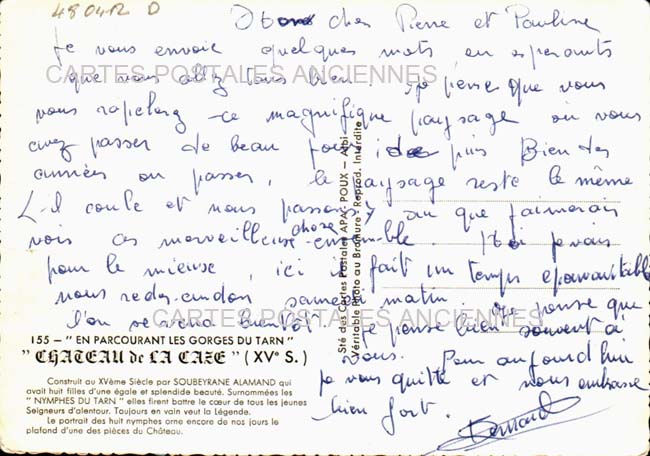 48042 D
chers Pierre et Pauline
Je vous envoie quelques mots en esperants
que vous allez tous bien. Je pense que vous
vous rapelerz ce magnifique paysage ou vous
avez passer de beau jour puis Bien des
années on passer, le paysage reste le même
L'il coule et nous passons, au que j'aimerais
vois ces merveilleuse chose ensemble. Moi je vais
pour le mieuse, ici il fait un temps epouvaitable
nous redescendon samedi matin. Je pense que
l'on se verra bientôt. Je pense bien souvent à
vous. Pour aujourd'hui
je vous quitte et nous embrasse
bien fort.
Bernard
CARTES POSTALES ANCIENNES
CARTES POSTALES ANCIENNES
Sté des Cartes Postales APA - POUX — Albi
Véritable Photo au Bromure - Reprod. Interdite
155 — "EN PARCOURANT LES GORGES DU TARN"
"CHATEAU de LA CAZE" (XVe S.)
Construit au XVème Siècle par SOUBEYRANE ALAMAND qui
avait huit filles d'une égale et splendide beauté. Surnommées les
"NYMPHES DU TARN" elles firent battre le cœur de tous les jeunes
Seigneurs d'alentour. Toujours en vain veut la Légende.
Le portrait des huit nymphes orne encore de nos jours le
plafond d'une des pièces du Château.